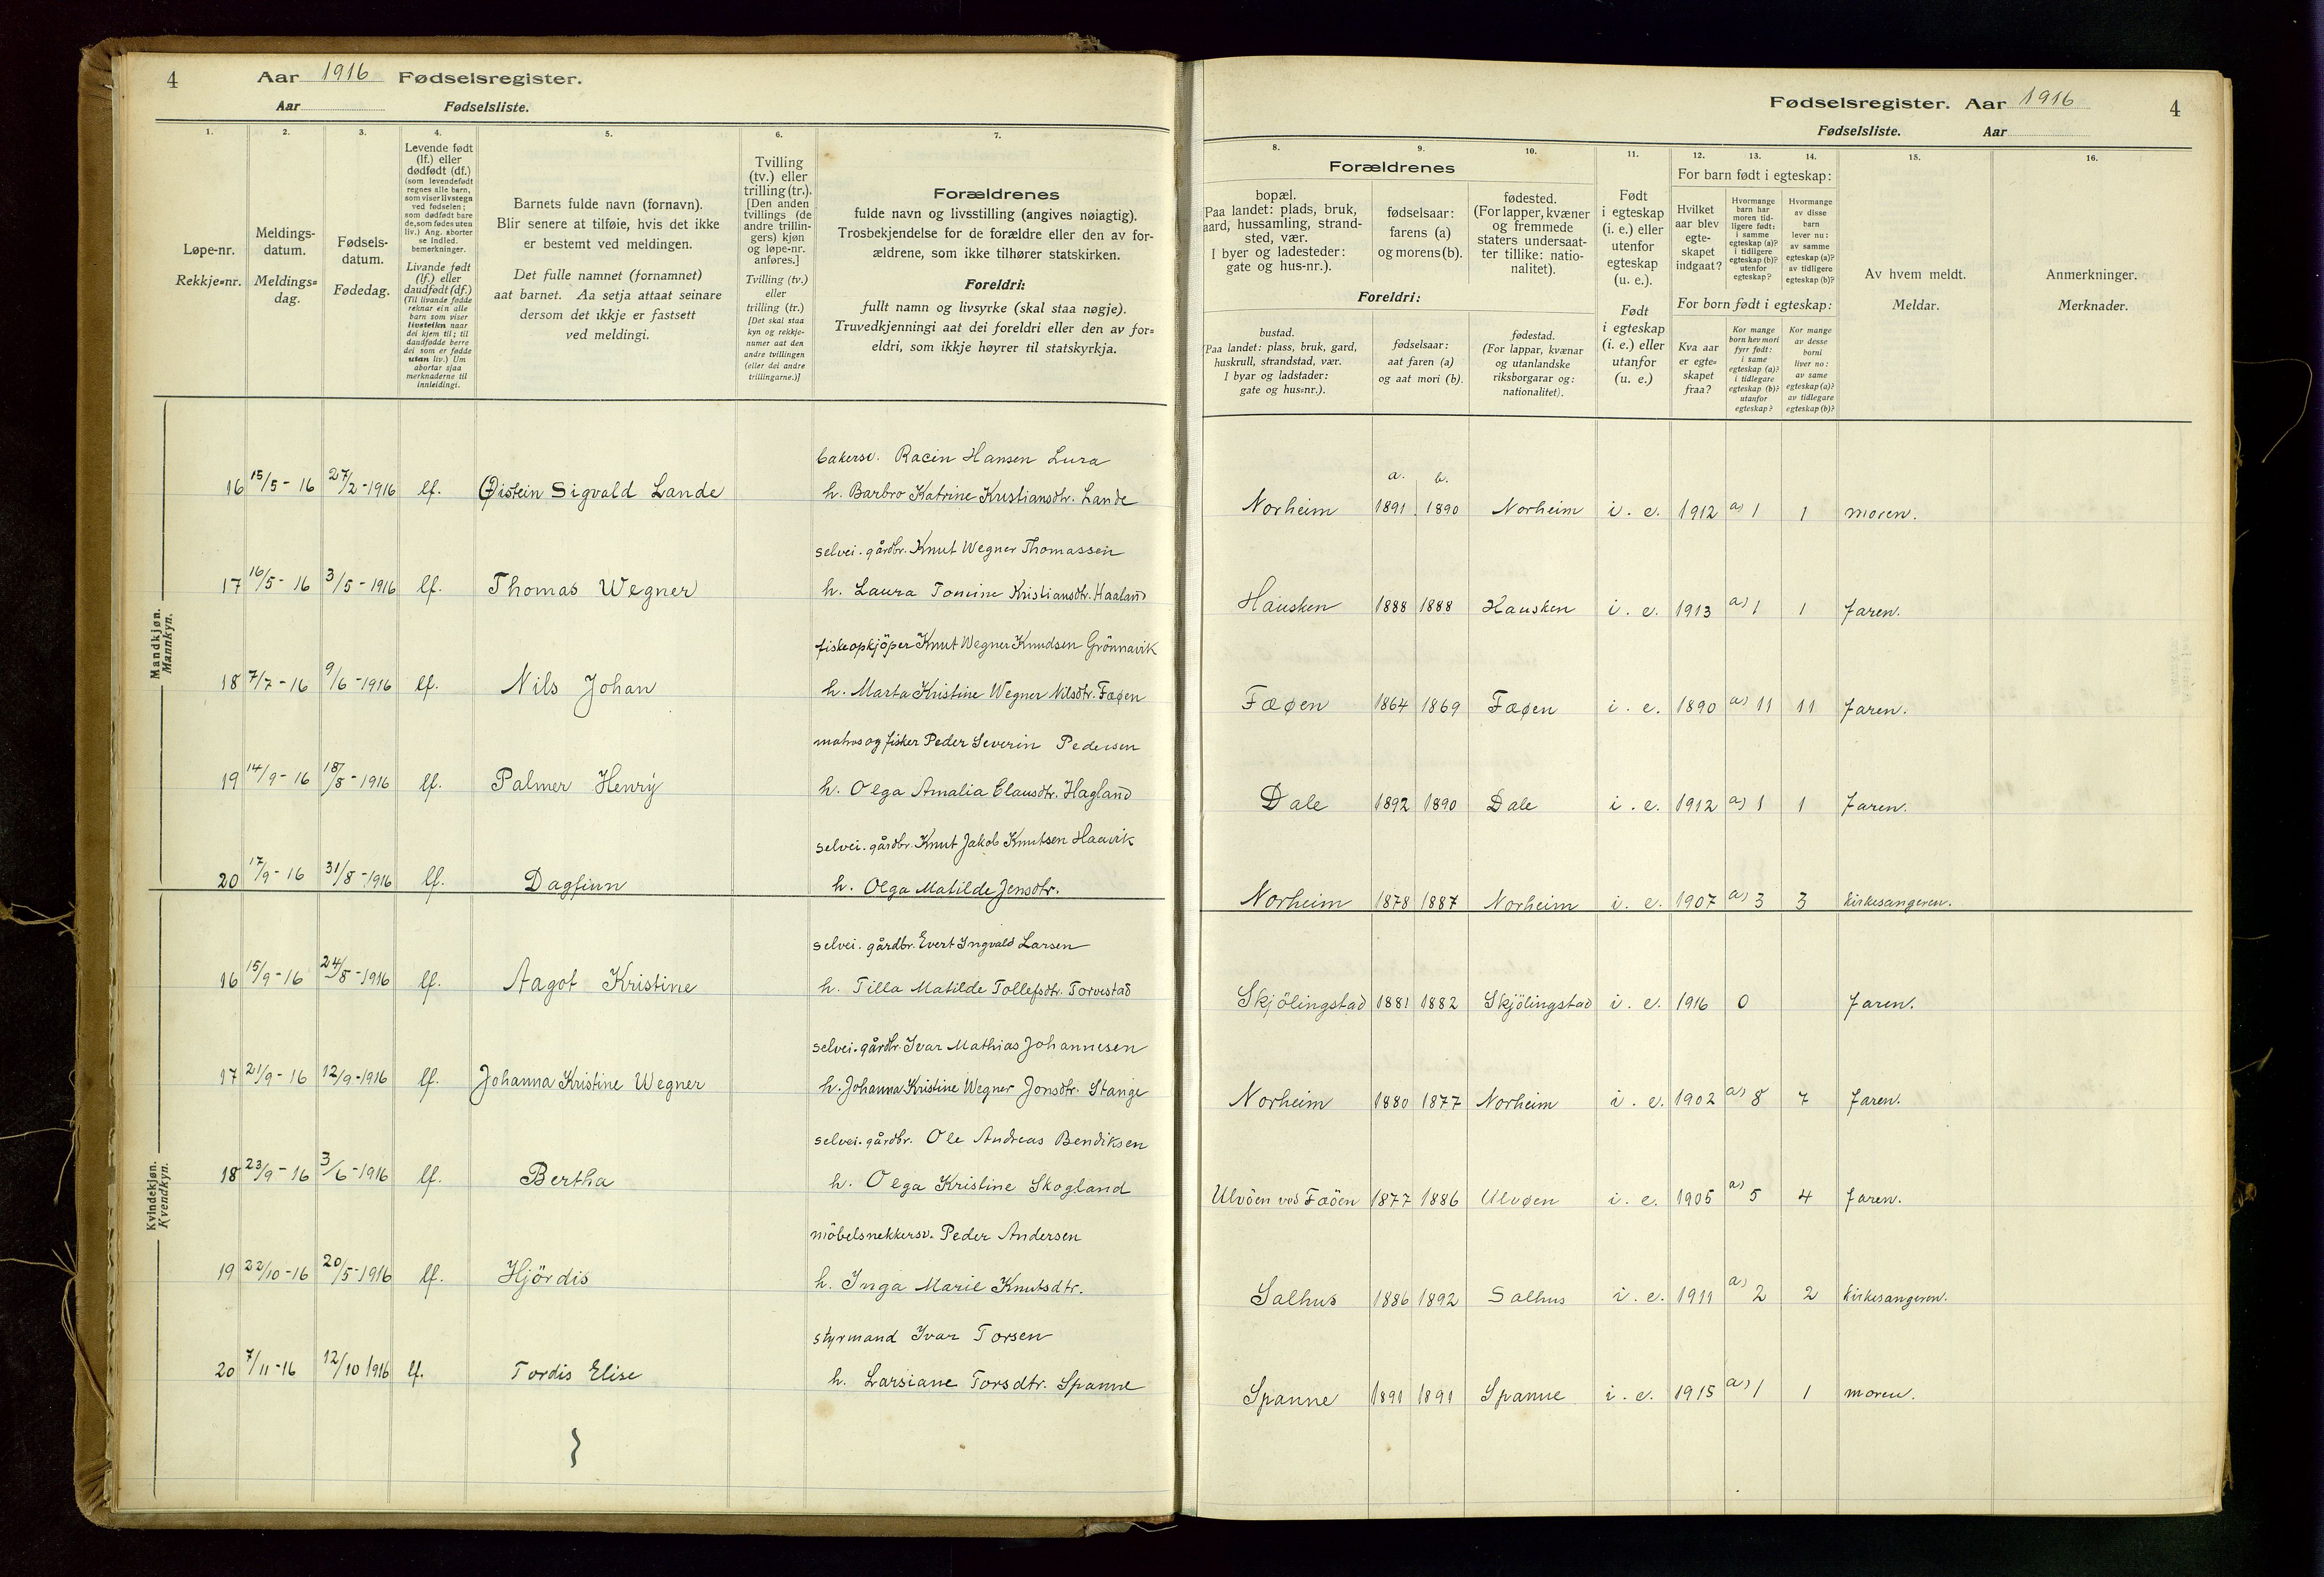 4 Aar 1916 Fødselsregister.
Aar Fødselsliste.
1. 2. 3. 4. 5. 6. 7.
Løpe-nr.
Rekkje=nr.
Meldings-
datum.
Meldings=
dag.
Fødsels-
datum.
Fødedag.
Levende født
(lf.) eller
dødfødt (df.)
(som levendefødt
regnes alle barn,
som viser livstegn
ved fødselen;
som dødfødt bare
de, som fødes uten
liv.) Ang. aborter
se indled.
bemerkninger.
Livande født
(lf.) eller
daudfødt (df.)
(Til livande fødde
reknar ein alle
barn som viser
livsteikn naar
dei kjem til; til
daudfødde berre
dei som er fødde
utan liv.) Um
abortar sjaa
merknaderne til
innleidingi.
Barnets fulde navn (fornavn).
Blir senere at tilføie, hvis det ikke
er bestemt ved meldingen.
Det fulle namnet (fornamnet)
aat barnet. Aa setja attaat seinare
dersom det ikkje er fastsett
ved meldingi.
Tvilling
(tv.) eller
trilling (tr.).
[Den anden
tvillings (de
andre trillin-
gers) kjøn
og løpe-nr.
anføres.]
Tvilling (tv.)
eller
trilling (tr.)
[Det skal staa
kyn og rekkje-
numer aat den
andre tvillingen
(eller dei andre
trillingarne.)]
Forældrenes
fulde navn og livsstilling (angives nøiagtig).
Trosbekjendelse for de forældre eller den av for-
ældrene, som ikke tilhører statskirken.
Foreldri:
fullt namn og livsyrke (skal staa nøgje).
Truvedkjenningi aat dei foreldri eller den av for=
eldri, som ikkje høyrer til statskyrkja.
Mandkjøn.
Mannkyn.
bakersv. Racin Hansen Lura
16 15/5-16 27/2-1916 lf. Øistein Sigvald Lande h. Barbro Katrine Kristiansdtr. Lande
selvei. gårdbr. Knut Wegner Thomassen
17 16/5-16 3/5-1916 lf. Thomas Wegner h. Laura Tomine Kristiansdtr. Haaland
fiskeopkjöper Knut Wegner Knudsen Grönnavik
18 7/7-16 9/6-1916 lf. Nils Johan h. Marta Kristine Wegner Nilsdtr. Fæøen
matros og fisker Peder Severin Pedersen
19 14/9-16 18/8-1916 lf. Palmer Henry h. Olga Amalia Clausdtr. Hagland
selvei. gårdbr. Knut Jakob Knutsen Haavik
20 17/9-16 31/8-1916 lf. Dagfinn h. Olga Matilde Jensdtr.
Kvindekjøn.
Kvendkyn.
selvei. gårdbr. Evert Ingvald Larsen
16 15/9-16 24/8-1916 lf. Aagot Kristine h. Tilla Matilde Tollefsdtr. Torvestad
selvei. gårdbr. Ivar Mathias Johannesen
17 21/9-16 12/9-1916 lf. Johanna Kristine Wegner h. Johanna Kristine Wegner Jonsdtr. Stange
selvei. gårdbr. Ole Andreas Bendiksen
18 23/9-16 3/6-1916 lf. Bertha h. Olga Kristine Skogland
möbelsnekkersv. Peder Andersen
19 22/10-16 20/5-1916 lf. Hjördis h. Inga Marie Knutsdtr.
styrmand Ivar Torsen
20 7/11-16 12/10 1916 lf. Tordis Elise h. Larsiane Torsdtr. Spanne
Fødselsregister. Aar 1916 4
Fødselsliste. Aar
8. 9. 10. 11. 12. 13. 14. 15. 16.
Forældrenes
bopæl.
(Paa landet: plads, bruk,
gaard, hussamling, strand-
sted, vær.
I byer og ladesteder:
gate og hus-nr.).
fødselsaar:
farens (a)
og morens (b).
fødested.
(For lapper, kvæner
og fremmede
staters undersaat-
ter tillike: natio-
nalitet).
Foreldri:
bustad.
(Paa landet: plass, bruk, gard,
huskrull, strandstad, vær.
I byar og ladstader:
gate og hus=nr.).
fødselsaar:
aat faren (a)
og aat mori (b).
fødestad.
(For lappar, kvænar
og utanlandske
riksborgarar og:
nationalitet).
Født
i egteskap
(i. e.) eller
utenfor
egteskap
(u. e.).
Født
i egteskap
(i. e.) eller
utanfor
(u. e.)
For barn født i egteskap:
Hvilket
aar blev
egte-
skapet
indgaat?
Hvormange
barn har
moren tid-
ligere født:
i samme
egteskap (a)?
i tidligere
egteskap (b)?
utenfor
egteskap?
Hvormange
av disse
barn
lever nu:
av samme
egteskap (a)?
av tidligere
egteskap (b)?
For born født i egteskap:
Kva aar
er egte=
skapet
fraa?
Kor mange
born hev mori
fyrr født:
i same
egteskap (a)?
i tidlegare
egteskap (b)?
utanfor
egteskap?
Kor mange
av desse
borni
liver no:
av same
egteskap (a)?
av tidlegare
egteskap (b)?
Av hvem meldt.
Meldar.
Anmerkninger.
Merknader.
a. b.
Norheim 1891 1890 Norheim i. e. 1912 a) 1 1 moren.
Hausken 1888 1888 Hausken i. e. 1913 a) 1 1 faren.
Fæøen 1864 1869 Fæøen i. e. 1890 a) 11 11 faren.
Dale 1892 1890 Dale i. e. 1912 a) 1 1 faren.
Norheim 1878 1887 Norheim i. e. 1907 a) 3 3 kirkesangeren.
Skjölingstad 1881 1882 Skjölingstad i. e. 1916 0 faren.
Norheim 1880 1877 Norheim i. e. 1902 a) 8 7 faren.
Ulvöen ved Fæöen 1877 1886 Ulvøen i. e. 1905 a) 5 4 faren.
Salhus 1886 1892 Salhus i. e. 1911 a) 2 2 kirkesangeren.
Spanne 1891 1891 Spanne i. e. 1915 a) 1 1 moren.